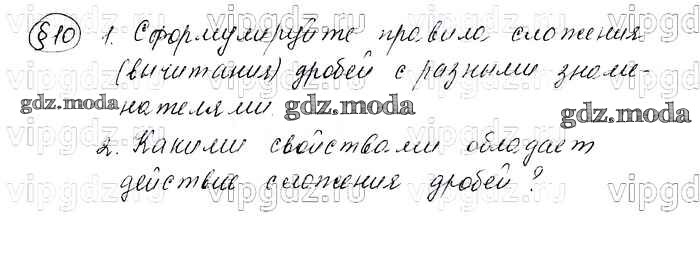 §10 1. Сформулируйте правила сложения
(вычитания) дробей с разными знаме-
нателями.
2. Какими свойствами обладает
действие сложения дробей?
gdz.moda gdz.moda gdz.moda